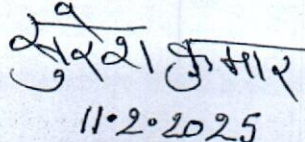 सुरेश कुमार
11.2.2025